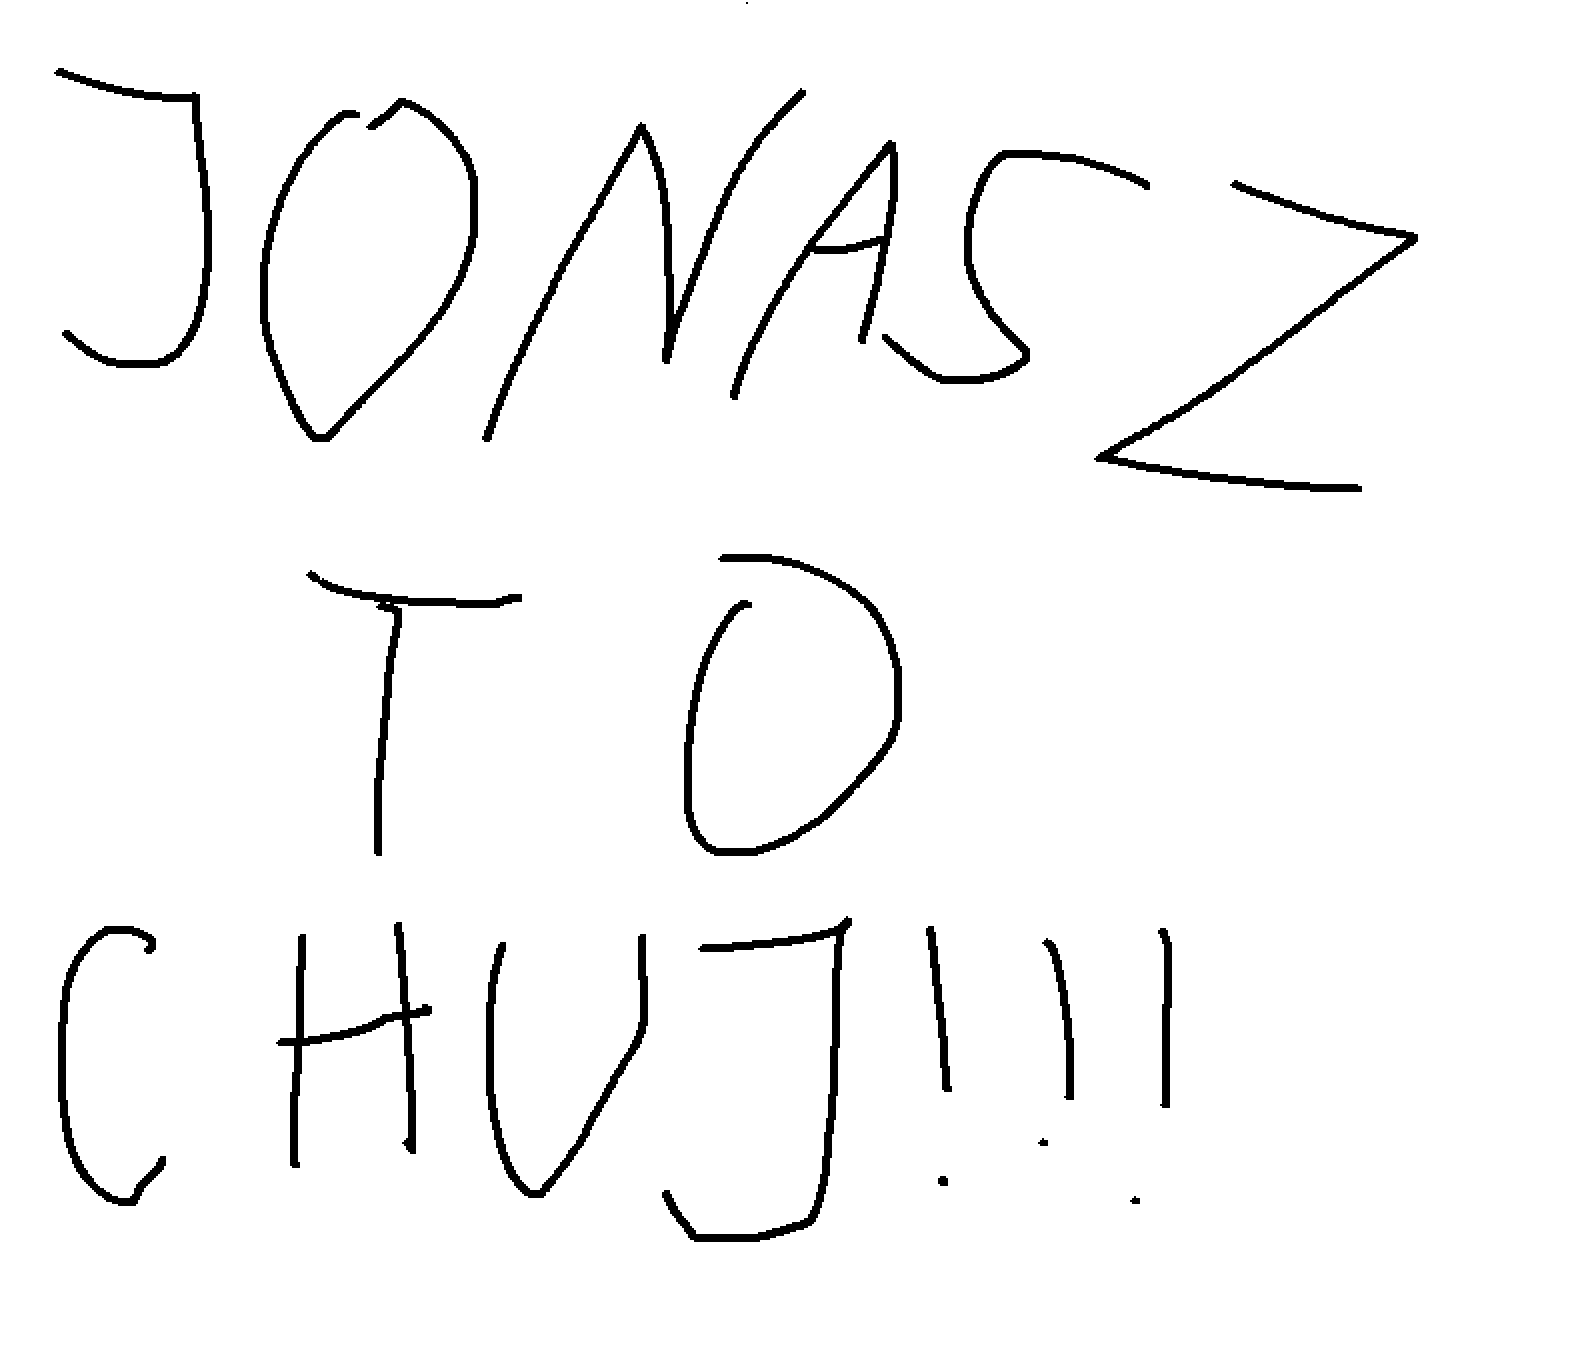 JONASZ
TO
CHUJ!!!